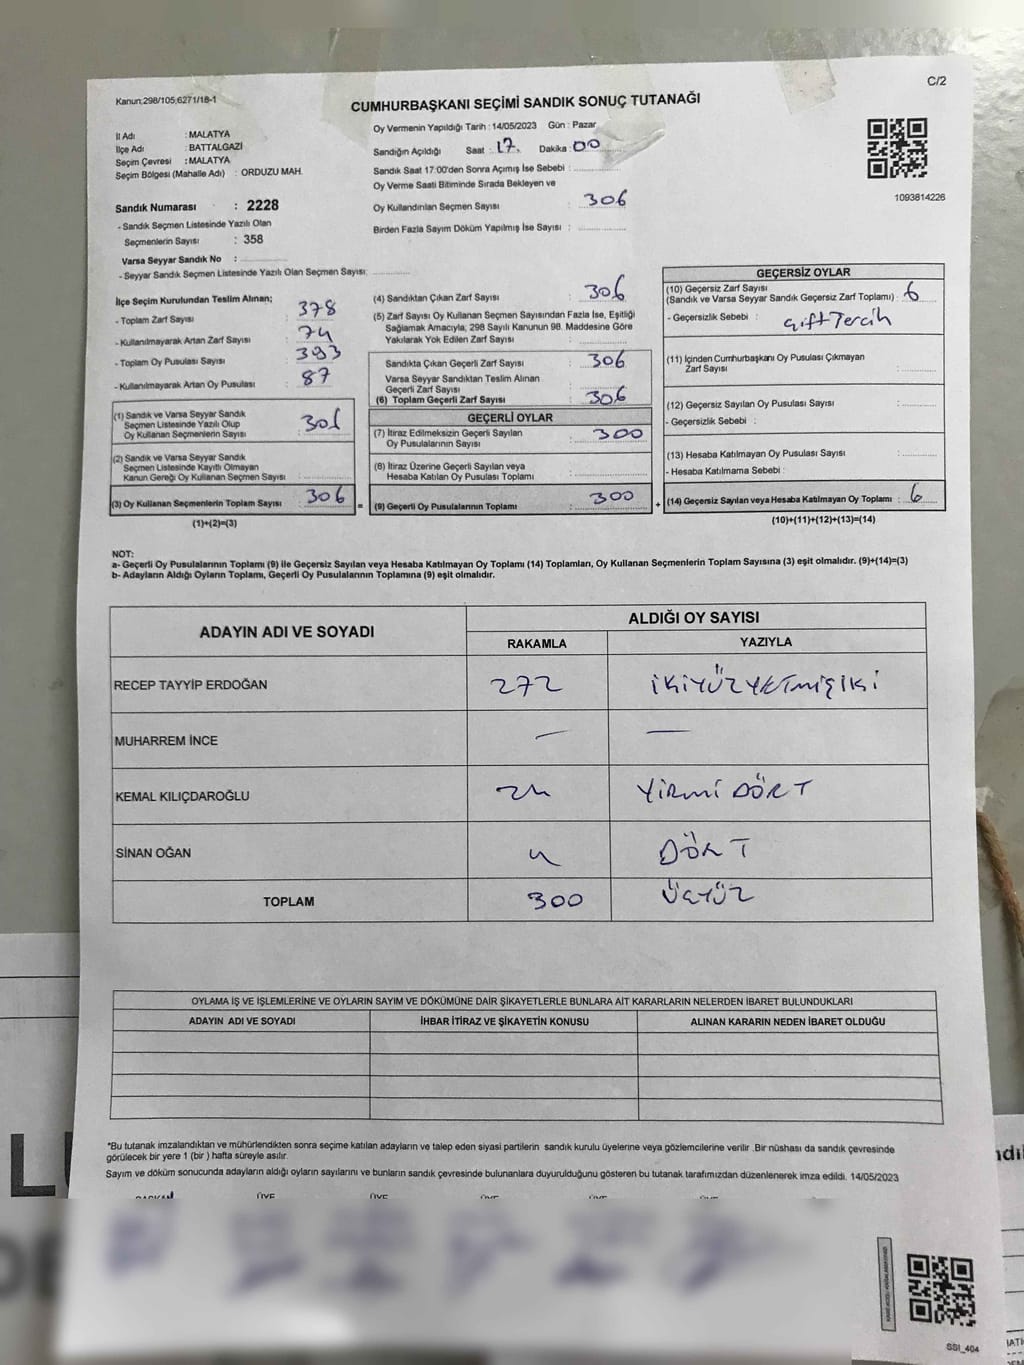 C/2
Kanun;298/105;6271/18-1
CUMHURBAŞKANI SEÇİMİ SANDIK SONUÇ TUTANAĞI
İl Adı : MALATYA
İlçe Adı : BATTALGAZİ
Seçim Çevresi : MALATYA
Seçim Bölgesi (Mahalle Adı) : ORDUZU MAH.
Sandık Numarası : 2228
- Sandık Seçmen Listesinde Yazılı Olan
Seçmenlerin Sayısı : 358
Varsa Seyyar Sandık No :
- Seyyar Sandık Seçmen Listesinde Yazılı Olan Seçmen Sayısı:
Oy Vermenin Yapıldığı Tarih : 14/05/2023 Gün : Pazar
Sandığın Açıldığı Saat : 17. Dakika : 00
Sandık Saat 17:00'den Sonra Açımış İse Sebebi :
Oy Verme Saati Bitiminde Sırada Bekleyen ve
Oy Kullandırılan Seçmen Sayısı : 306
Birden Fazla Sayım Döküm Yapılmış İse Sayısı :
1093814226
İlçe Seçim Kurulundan Teslim Alınan;
- Toplam Zarf Sayısı : 378
- Kullanılmayarak Artan Zarf Sayısı : 74
- Toplam Oy Pusulası Sayısı : 393
- Kullanılmayarak Artan Oy Pusulası : 87
(1) Sandık ve Varsa Seyyar Sandık
Seçmen Listesinde Yazılı Olup
Oy Kullanan Seçmenlerin Sayısı : 306
(2) Sandık ve Varsa Seyyar Sandık
Seçmen Listesinde Kayıtlı Olmayan
Kanun Gereği Oy Kullanan Seçmen Sayısı :
(3) Oy Kullanan Seçmenlerin Toplam Sayısı : 306
(1)+(2)=(3)
=
(4) Sandıktan Çıkan Zarf Sayısı : 306
(5) Zarf Sayısı Oy Kullanan Seçmen Sayısından Fazla İse, Eşitliği
Sağlamak Amacıyla, 298 Sayılı Kanunun 98. Maddesine Göre
Yakılarak Yok Edilen Zarf Sayısı :
Sandıkta Çıkan Geçerli Zarf Sayısı : 306
Varsa Seyyar Sandıktan Teslim Alınan
Geçerli Zarf Sayısı :
(6) Toplam Geçerli Zarf Sayısı : 306
GEÇERLİ OYLAR
(7) İtiraz Edilmeksizin Geçerli Sayılan
Oy Pusulalarının Sayısı : 300
(8) İtiraz Üzerine Geçerli Sayılan veya
Hesaba Katılan Oy Pusulası Toplamı :
(9) Geçerli Oy Pusulalarının Toplamı : 300
+
GEÇERSİZ OYLAR
(10) Geçersiz Zarf Sayısı
(Sandık ve Varsa Seyyar Sandık Geçersiz Zarf Toplamı) : 6
- Geçersizlik Sebebi : Çift Tercih
(11) İçinden Cumhurbaşkanı Oy Pusulası Çıkmayan
Zarf Sayısı :
(12) Geçersiz Sayılan Oy Pusulası Sayısı :
- Geçersizlik Sebebi :
(13) Hesaba Katılmayan Oy Pusulası Sayısı :
- Hesaba Katılmama Sebebi :
(14) Geçersiz Sayılan veya Hesaba Katılmayan Oy Toplamı : 6
(10)+(11)+(12)+(13)=(14)
NOT:
a- Geçerli Oy Pusulalarının Toplamı (9) ile Geçersiz Sayılan veya Hesaba Katılmayan Oy Toplamı (14) Toplamları, Oy Kullanan Seçmenlerin Toplam Sayısına (3) eşit olmalıdır. (9)+(14)=(3)
b- Adayların Aldığı Oyların Toplamı, Geçerli Oy Pusulalarının Toplamına (9) eşit olmalıdır.
ADAYIN ADI VE SOYADI
ALDIĞI OY SAYISI
RAKAMLA YAZIYLA
RECEP TAYYİP ERDOĞAN 272 İKİYÜZYETMİŞİKİ
MUHARREM İNCE — —
KEMAL KILIÇDAROĞLU 24 YİRMİ DÖRT
SİNAN OĞAN 4 DÖRT
TOPLAM 300 ÜÇYÜZ
OYLAMA İŞ VE İŞLEMLERİNE VE OYLARIN SAYIM VE DÖKÜMÜNE DAİR ŞİKAYETLERLE BUNLARA AİT KARARLARIN NELERDEN İBARET BULUNDUKLARI
ADAYIN ADI VE SOYADI İHBAR İTİRAZ VE ŞİKAYETİN KONUSU ALINAN KARARIN NEDEN İBARET OLDUĞU
*Bu tutanak imzalandıktan ve mühürlendikten sonra seçime katılan adayların ve talep eden siyasi partilerin sandık kurulu üyelerine veya gözlemcilerine verilir. Bir nüshası da sandık çevresinde
görülecek bir yere 1 (bir ) hafta süreyle asılır.
Sayım ve döküm sonucunda adayların aldığı oyların sayılarını ve bunların sandık çevresinde bulunanlara duyurulduğunu gösteren bu tutanak tarafımızdan düzenlenerek imza edildi. 14/05/2023
BAŞKAN ÜYE ÜYE ÜYE ÜYE ÜYE
SSI_404